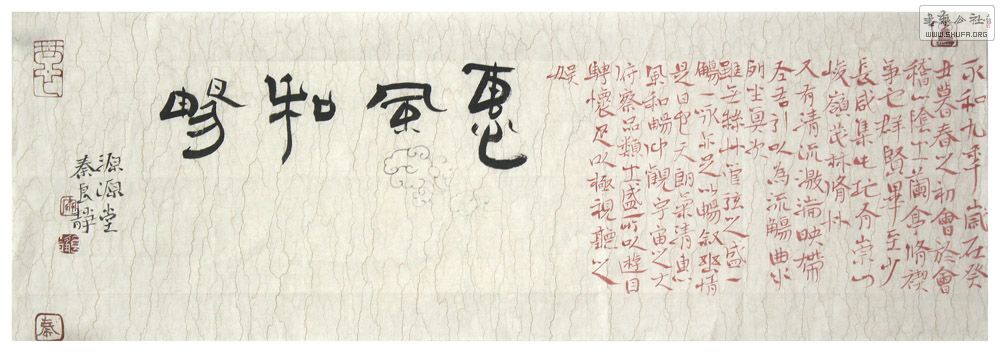 永和九年歲在癸
丑暮春之初會於會
稽山陰之蘭亭脩禊
事也群賢畢至少
長咸集此地有崇山
峻嶺茂林脩竹
又有清流激湍映帶
左右引以為流觴曲水
列坐其次
雖無絲竹管弦之盛一
觴一詠亦足以暢敘幽情
是日也天朗氣清惠
風和暢仰觀宇宙之大
府察品類之盛所以遊目
騁懷足以極視聽之
娛
惠風和暢
源源堂
秦良靜
秦
書法公社
WWW.SHUFA.ORG